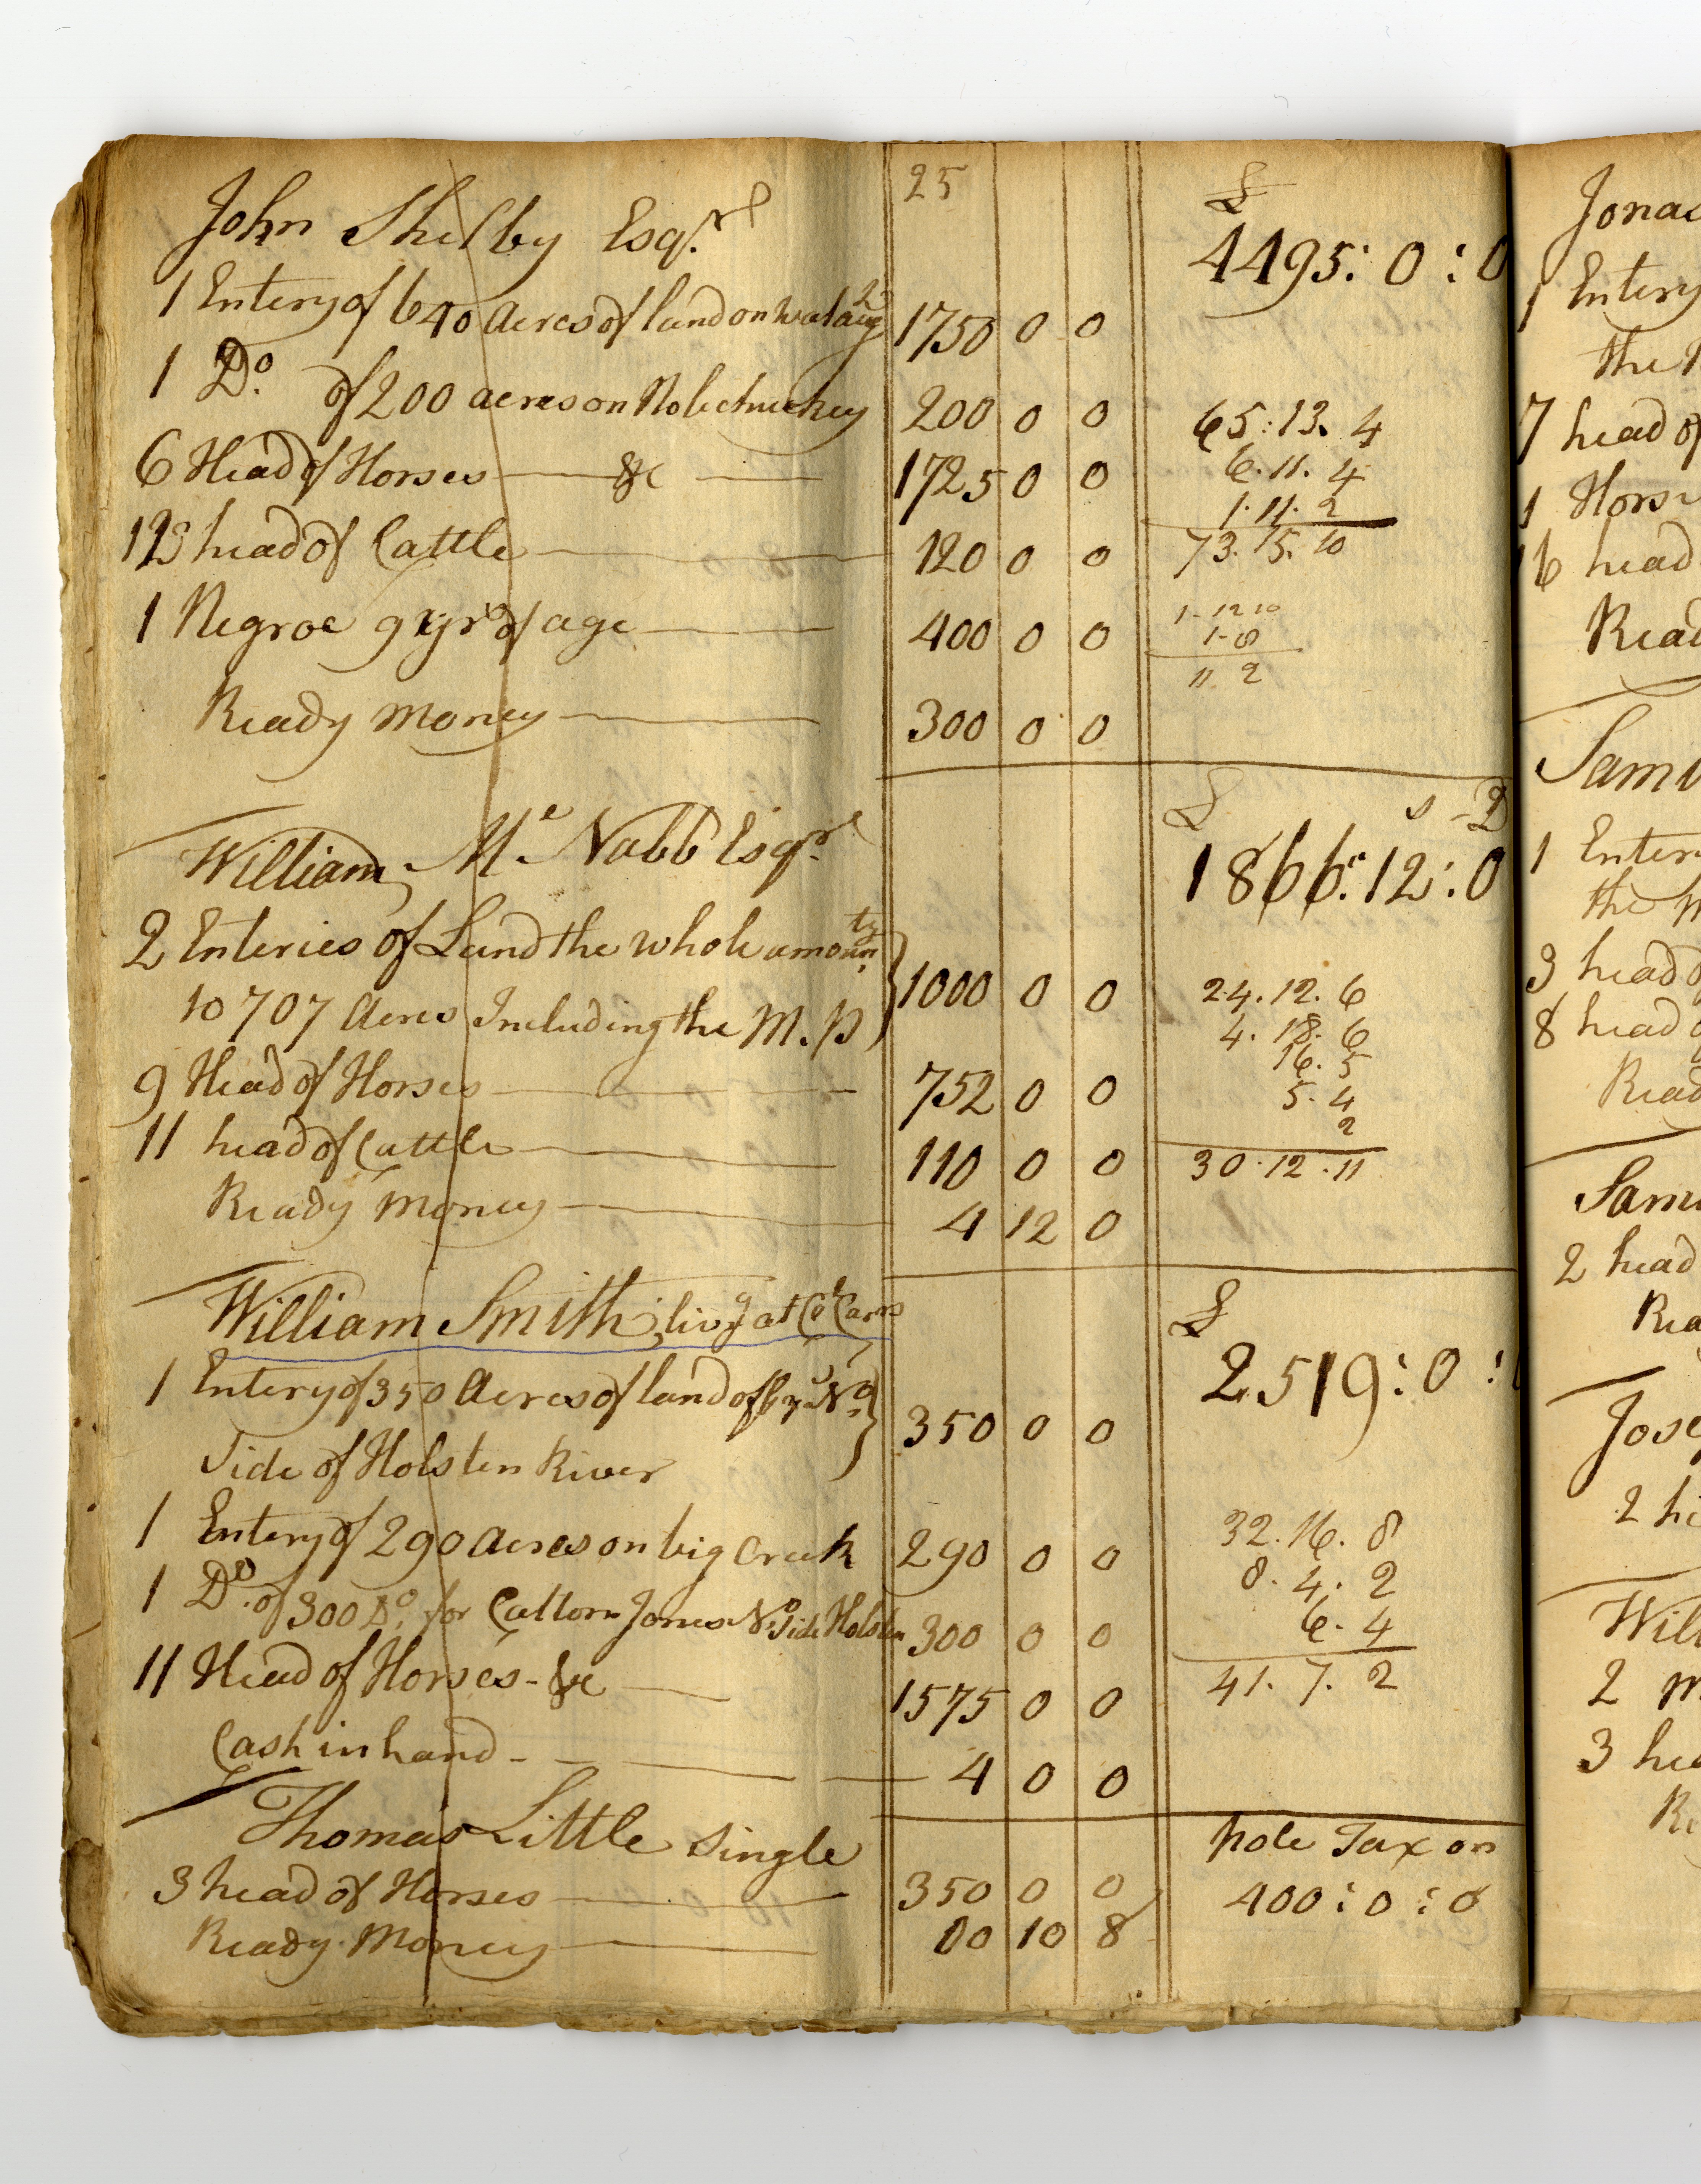 25
John Shelby Esqr. £
4495:0:0
1 Entery of 640 Acres of land on Wataug 1750 0 0
1 Do. of 200 acres on Nolechuckey 200 0 0
65:13.4
6 Head of Horses &c 1725 0 0
6.11.4
1.11.2
12 head of Cattle 120 0 0
73.15.10
1 Negroe 9 yrs of age 400 0 0
1-12 10
1-8
11 2
Ready Money 300 0 0
£ s D
William Mc. Nabb Esqr.
1866:12:0
2 Enteries of Land the whole amounty
10 707 Acres Including the M.P 1000 0 0
24.12.6
4.18.6
16.5
9 Head of Horses 752 0 0
5.4
2
11 head of Cattle 110 0 0
30.12.11
Ready Money 4 12 0
William Smith, livg at Carns £
2519:0:
1 Entery of 350 Acres of land No.
Side of Holsten River 350 0 0
1 Entery of 290 Acres on big Creek 290 0 0
32.16.8
8.4.2
1 Do. of 300 Do. for Jones No. Side Holsten 300 0 0
6.4
11 Head of Horses - &c 1575 0 0
41.7.2
Cash in hand 4 0 0
Thomas Little single
pole Tax on
3 head of Horses 350 0 0
400:0:0
Ready Money 00 10 8
Jonas
1 Entery
the
7 head of
1 Horse
16 head
Read
Sam
1 Enter
the
3 head
8 head
Read
Sam
2 head
Rea
Jose
2 he
Will
2 m
3 hea
Re